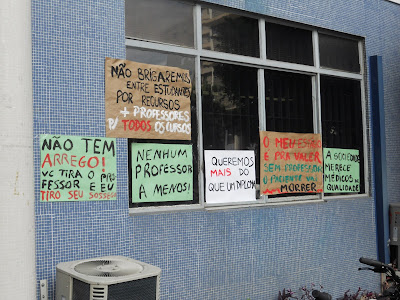 NÃO BRIGAREMOS
ENTRE ESTUDANTES
POR RECURSOS
+ PROFESSORES
P/ TODOS OS CURSOS
NÃO TEM
ARREGO!
VC TIRA O PRO
FESSOR E EU
TIRO SEU SOSSEGO
NENHUM
PROFESSOR
A MENOS!
QUEREMOS
MAIS DO
QUE UM DIPLOMA
O MEU
É PRA VALER
SEM PROFESSOR
O PACIENTE VAI
MORRER
A SOCIEDADE
MERECE
MÉDICOS DE
QUALIDADE